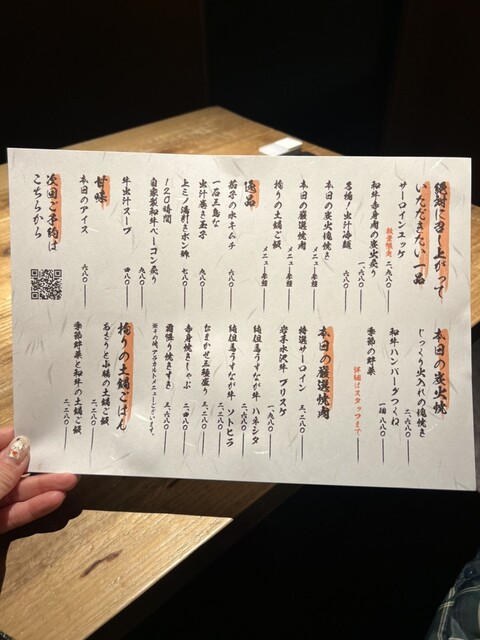 絶対に召し上がって
いただきたい一品
サーロインユッケ
数量限定 二、九八〇
和牛赤身肉の炭火炙り
一、六八〇
名物!出汁冷麺
本日の炭火塊焼き
本日の厳選焼肉
メニュー参照
拘りの土鍋ご飯
メニュー参照
逸品
茄子の水キムチ
六八〇
一石三鳥な
出汁巻き玉子
九八〇
上ミノ湯引きポン酢
七八〇
120時間
自家製和牛ベーコン炙り
九八〇
牛出汁スープ
四八〇
甘味
本日のアイス
六八〇
次回ご予約は
こちらから
本日の炭火焼
じっくり火入れの塊焼き
二、六八〇
和牛ハンバーグつくね
一個 八八〇
季節の野菜
詳細はスタッフまで
本日の厳選焼肉
特選サーロイン
三、二八〇
岩手水沢牛 ブリスケ
一、九八〇
純但馬うすなが牛 ハネシタ
純但馬うすなが牛 ソトヒラ
二、二八〇
おまかせ五種盛り
三、二八〇
赤身焼きしゃぶ
二、四八〇
霜降り焼きすき
三、六八〇
※その他、アラカルトメニューもございます。
拘りの土鍋ごはん
あさりと小鯛の土鍋ご飯
二、二八〇
季節野菜と和牛の土鍋ご飯
二、二八〇